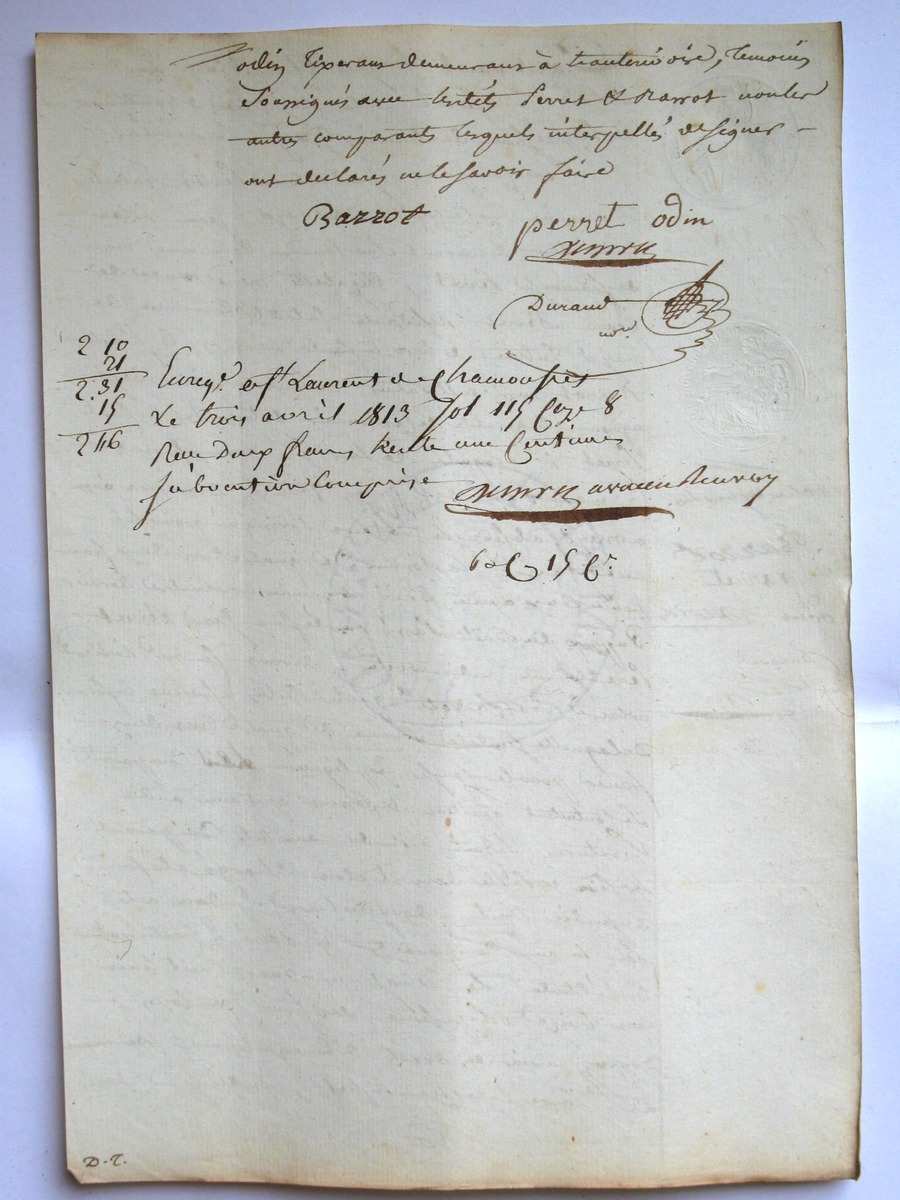 odin Tixerans demeurans à trauternoire, temoins
Soussignés avec lesdits Perret & Barrot nonles
autres comparants lesquels interpellés designer –
ont declarés ne le savoir faire
Barrot
perret odin
Durand
nore
2 10
21
2.31
15
2 46
Enregé. à St Laurent de Chamousset
Le trois avril 1813 fol 115 Case 8
Reçu Deux francs trente une Centimes
Subvention Comprise
15 C.
D. T.